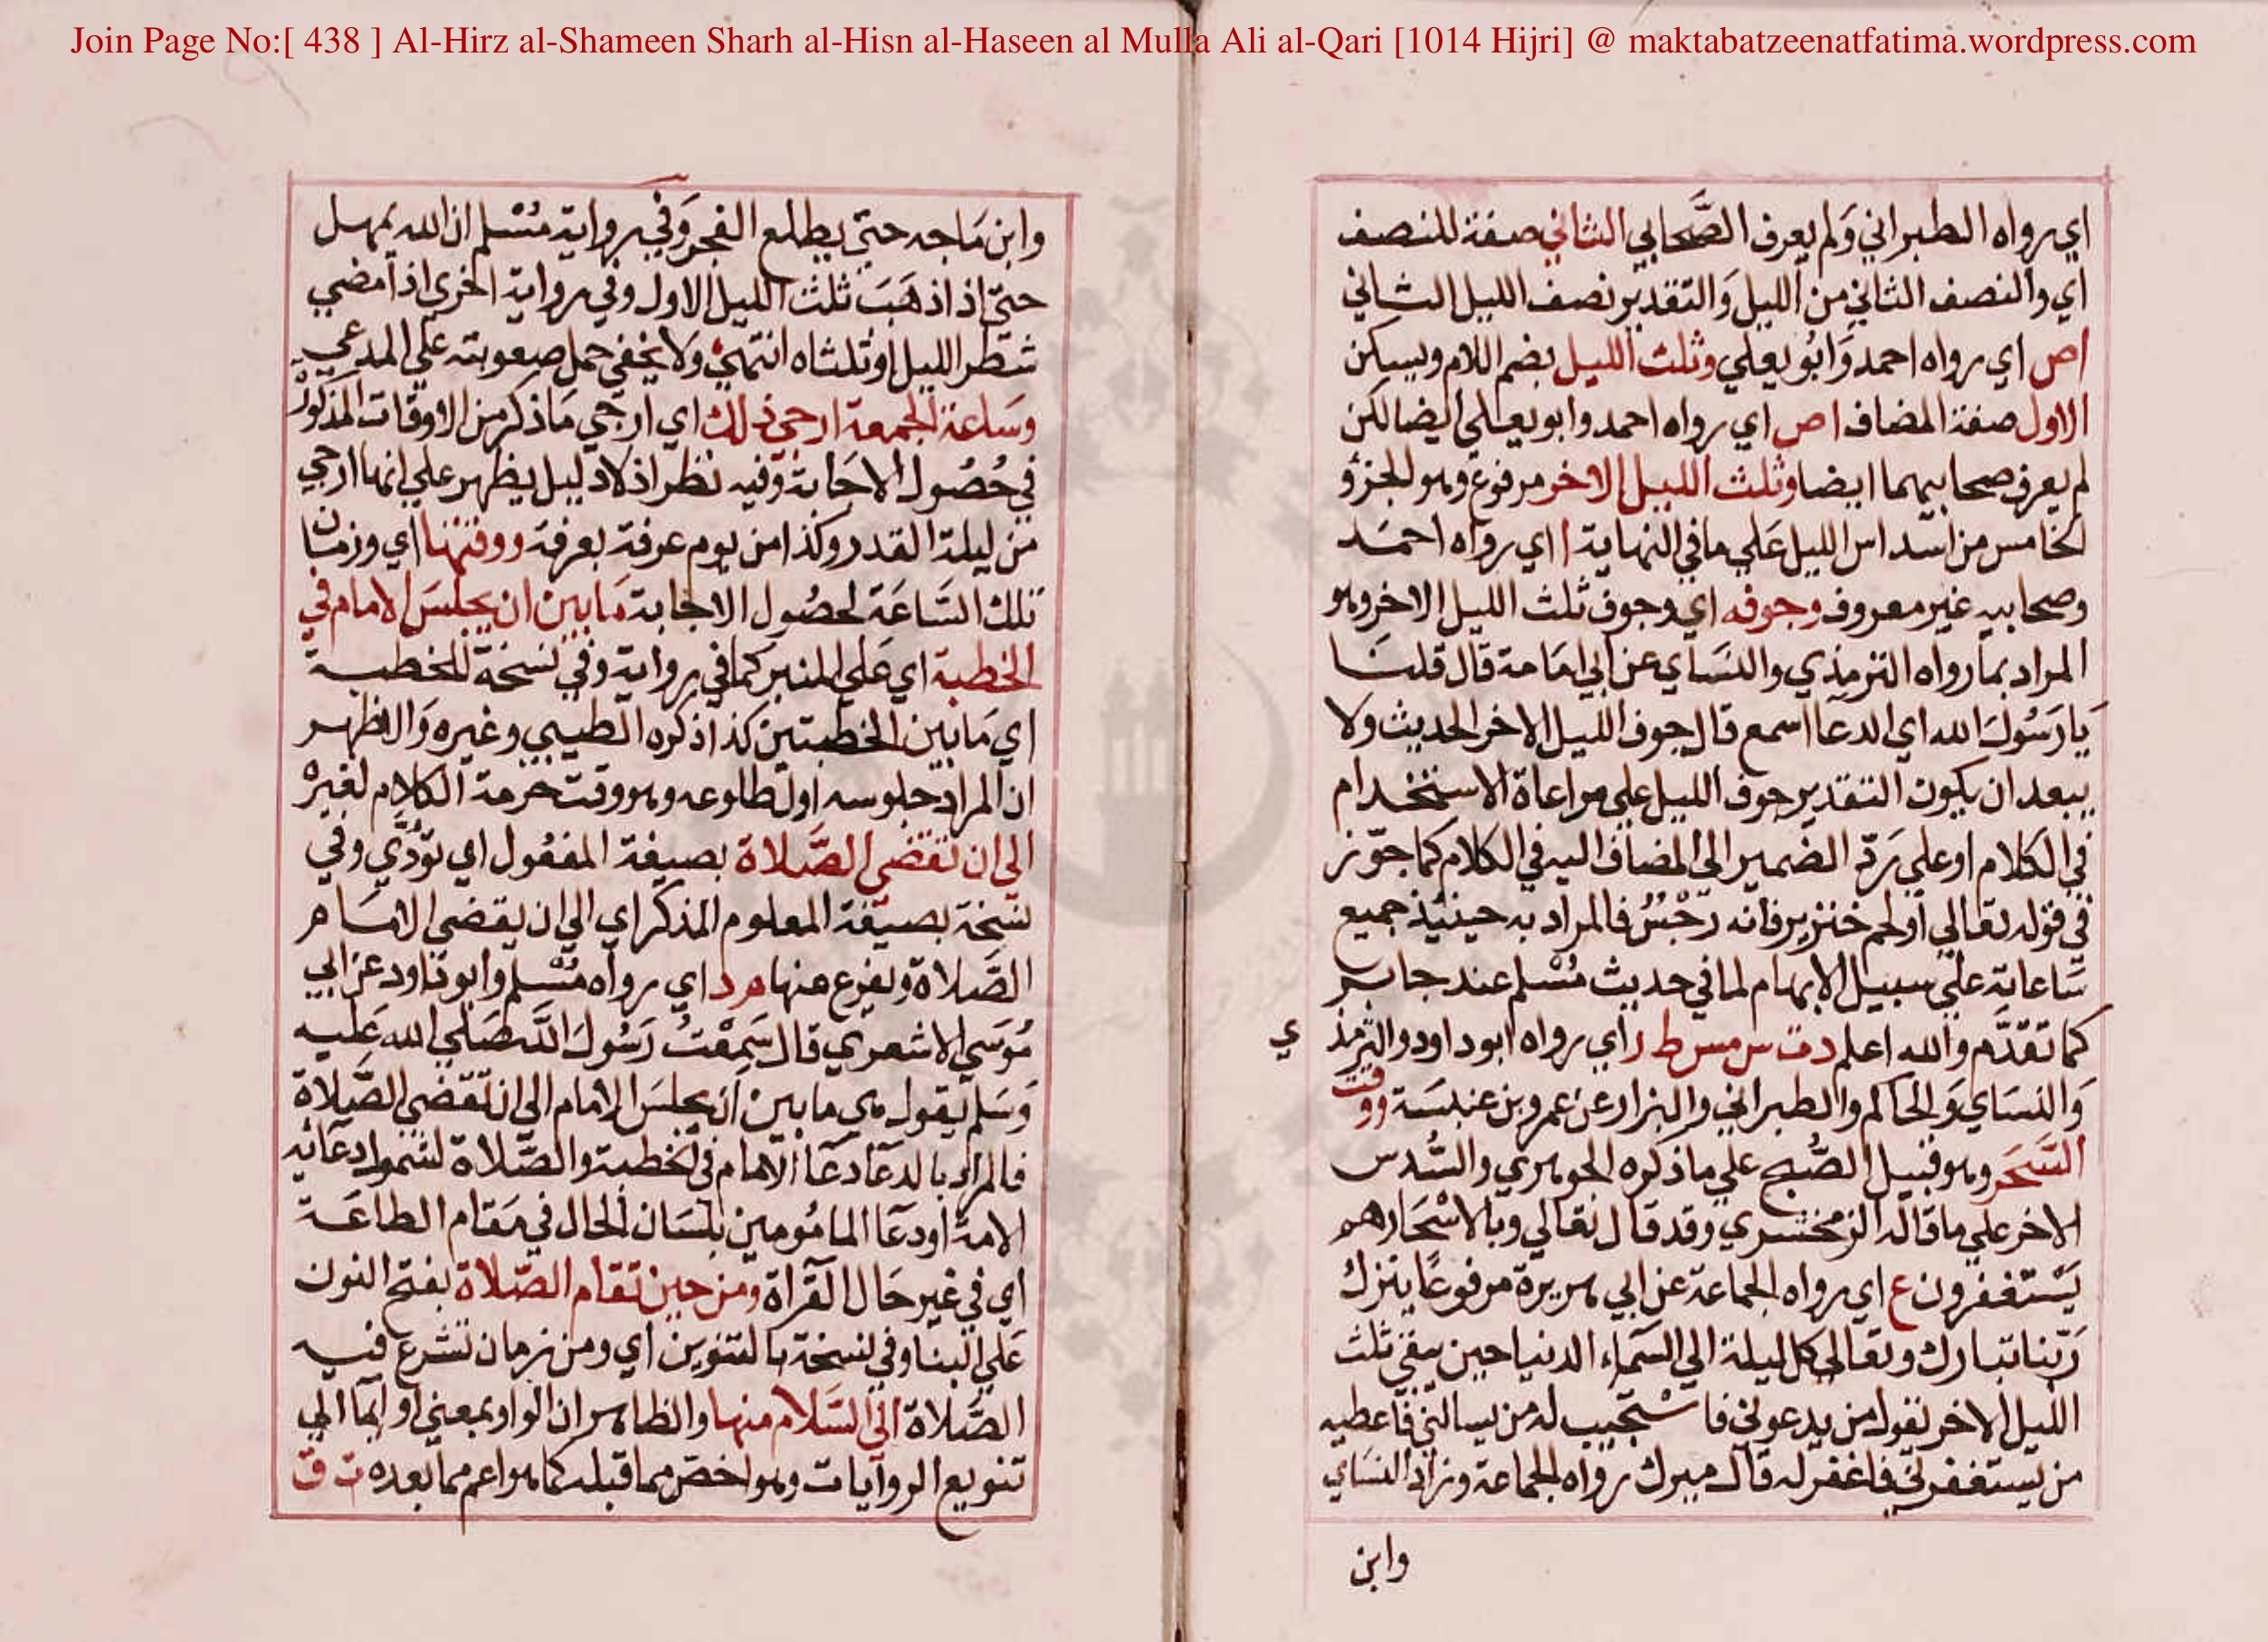 Join Page No:[ 438 ] Al-Hirz al-Shameen Sharh al-Hisn al-Haseen al Mulla Ali al-Qari [1014 Hijri] @ maktabatzeenatfatima.wordpress.com
اي رواه الطبراني وَلم يعرف الصَّحابي الثاني صفة للنصف
اي والنصف الثاني من الليل وَالتقدير نصف الليل الثاني
اص اي رواه احمد وَابُو يعلي وثلث الليل بضم اللام ويسكن
الاول صفة المضاف اص اي رواه احمد وابو يعلي ايضا لكن
لم يعرف صحابيهما ايضا وثلث الليل الاخر مرفوع وهو الجزؤ
الخامس من اسداس الليل عَلي ما في النهاية ا اي رواه احمَد
وصحابيه غير معروف وجوفه اي وجوف ثلث الليل الاخر وهو
المراد بما رواه الترمذي والنسَاي عن ابي امَامة قال قلنَا
يَا رَسُولَ الله اي الدعا اسمع قال جوف الليل الاخر الحديث ولا
يبعد ان يكون التقدير جوف الليل علي مراعاة الاستخدام
في الكلام او علي رَدّ الضمير الي المضاف اليه في الكلام كما جوّز
في قوله تعالي او لحم خنزير فانه رجْسٌ فالمراد به حينئذ جميع
سَاعاته علي سبيل الابهام لما في حديث مُسْلم عند جابر
كما تقدَّم والله اعلم دت س مس ط ر اي رواه ابو داود والترمذ
ي
وَالنسَاي وَالحاكم والطبراني والبزار عن عمرو بن عنبسَة ووقت
السَّحَر وهو قبيل الصُّبح علي ما ذكره الجوهري والسُّدس
الاخر علي ما قاله الزمخشري وقد قال تعالي وبالاسْحَار هم
يَسْتغفرون ع اي رواه الجماعة عن ابي هريرة مرفوعًا ينزل
رَبّنا تبارك وتعالي كل ليلة الي السَّماء الدنيا حين يبقي ثلث
الليل الاخر يقول من يدعوني فاسْتجيب له من يسالني فاعطيه
من يستغفرني فاغفر له قال ميرك رواه الجماعة وزاد النسَاي
وابن
وابن مَاجه حتي يطلع الفجر وَفي رواية مُسْلم ان الله يمهل
حتّي اذا ذهَبَ ثلث الليل الاول وفي رواية اخري اذا مضي
شطر الليل او ثلثاه انتهي وَلا يخفي حمل صعوبته علي المدعي
وَسَاعة الجمعة ارجي ذلك اي ارجي مَا ذكر من الاوقات المذكورْ
في حُصُول الاجَابة وفيه نظر اذ لا دليل يظهر علي انها ارجي
من ليلة القدر وكذا من يوم عرفة بعرفة ووقتها اي وزمَان
تلك السَّاعَة لحصُول الاجابة مَا بين ان يجلسَ الامام في
الخطبة اي عَلي المنبر كما في رواية وفي نسخة للخطبة
اي مَا بين الخطبتين كذا ذكره الطيبي وغيره وَالاظهر
ان المراد جلوسه اول طلوعه وهو وقت حرمة الكلام لغيرْ
الي ان تقضي الصَّلاة بصيغة المفعُول اي تؤدَّي وفي
نسخة بصيغة المعلوم المذكر اي الي ان يقضي الامَام
الصَّلاة ويفرغ منها م د اي رواه مُسْلم وابو داود عن ابي
مُوسَي الاشعري قال سَمِعْتُ رَسُولَ اللَّه صَلّي الله عَليه
وَسَلم يقول هي ما بين ان يجلسَ الامام الي ان تقضي الصَّلاة
فالمراد بالدعا دعا الامام في الخطبة والصَّلاة لشمول دعائه
الامة او دعا المامُومين بلسَان الحال في مَقام الطاعَة
اي في غير حَال القرآة ومن حين تقام الصَّلاة بفتح النون
عَلي البنا وفي نسخة بالتنوين اي ومن زمان تشرع فيه
الصَّلاة الي السَّلام منها والظاهر ان الواو بمعني او ايما الي
تنويع الروايات وهو اخص مما قبله كما هو اعم مما بعده ت ق